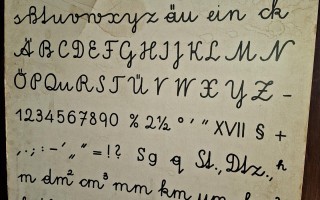 stuvwxyz äu ein ck
ÄBCDEFGHIJKLMN
ÖPQuRSTÜVWXYZ -
1234567890 % 2½ ° ' " XVII § +
.,:;-'," = !? Sg q St., Dtz., h
m dm² cm³ mm km